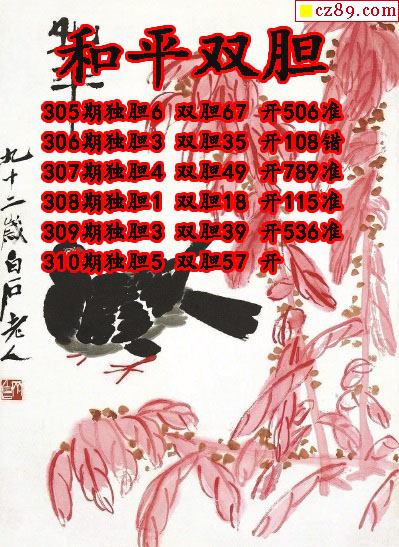 cz89.com
和平双胆
305期独胆6 双胆67 开506准
306期独胆3 双胆35 开108错
307期独胆4 双胆49 开789准
308期独胆1 双胆18 开115准
309期独胆3 双胆39 开536准
310期独胆5 双胆57 开
九十二岁白石老人